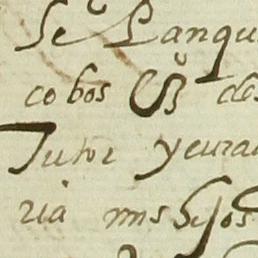 Se Lanqu
cobos des
Tutor y cura
ria mis hijos